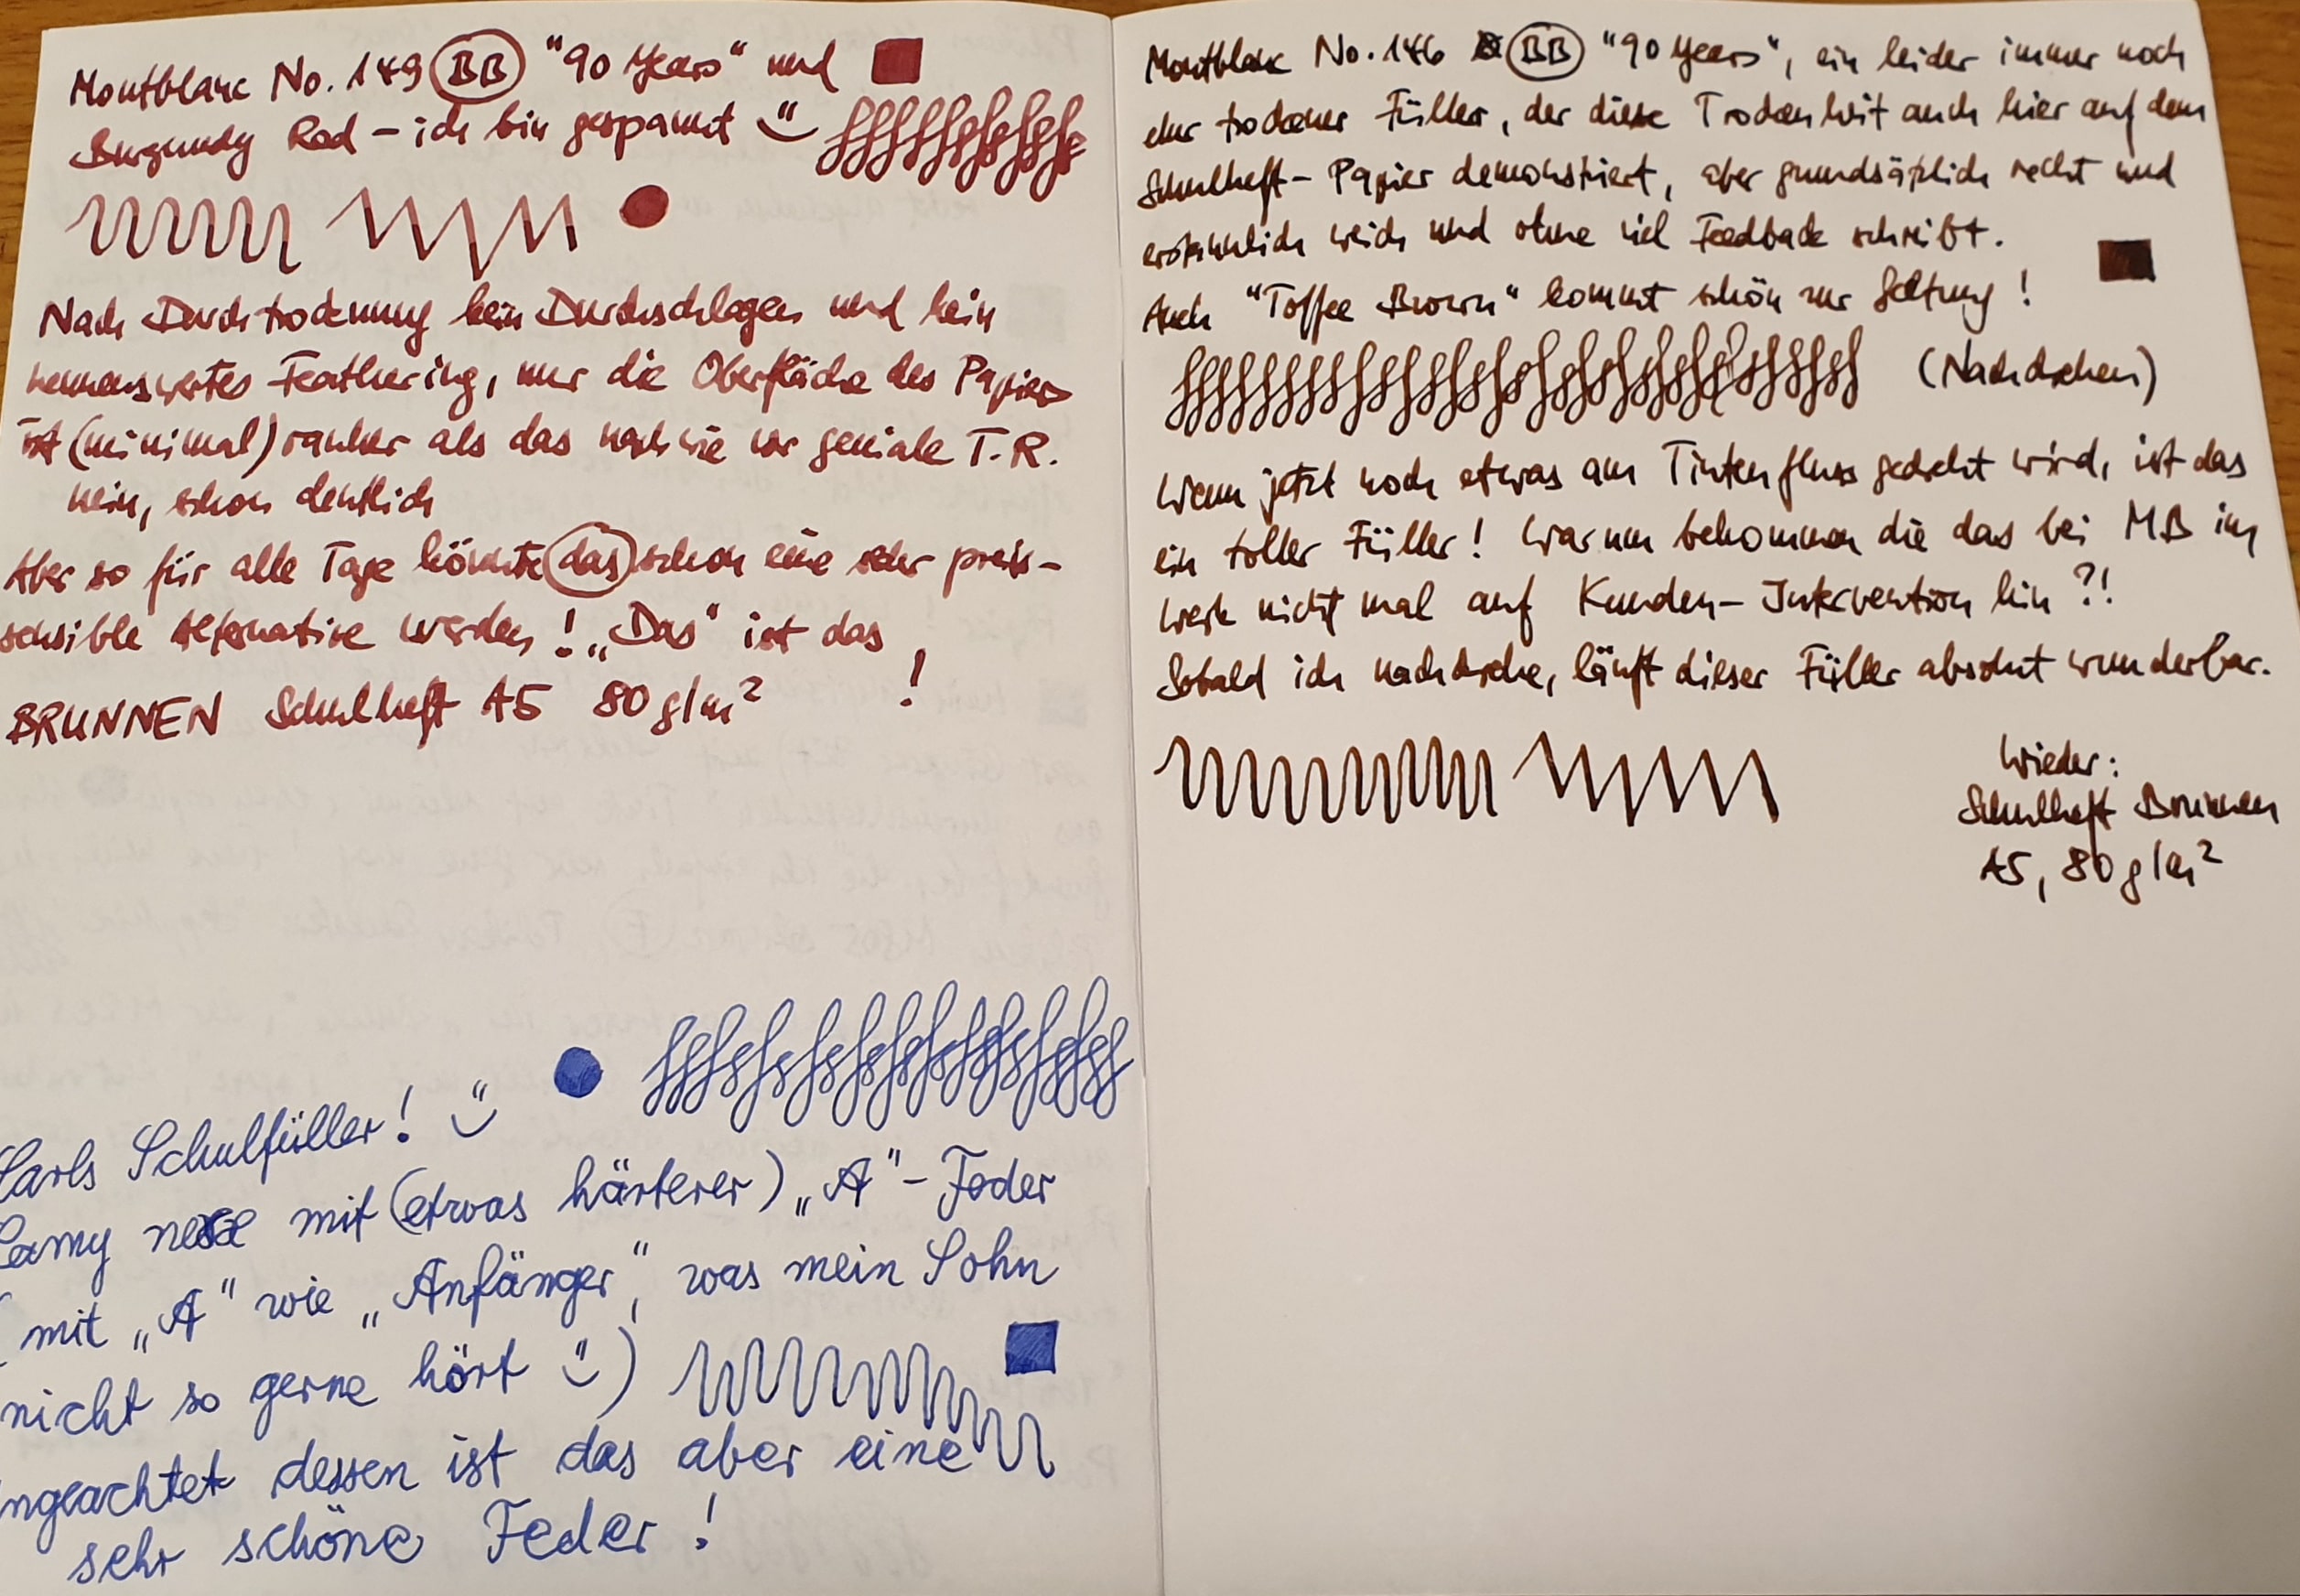 Montblanc No. 149 BB "90 Years" und
Burgundy Red – ich bin gespannt
Nach Durchtrocknung kein Durchschlagen und kein
nennenswertes Feathering, nur die Oberfläche des Papiers
ist (minimal) rauher als das nach wie vor geniale T.R.
nein, schon deutlich
Aber so für alle Tage könnte das schon eine sehr preis-
sensible Alternative werden! „Das" ist das
BRUNNEN Schulheft A5 80 g/m² !
Carls Schulfüller!
Lamy nexx mit (etwas härterer) „A"-Feder
(mit „A" wie „Anfänger", was mein Sohn
nicht so gerne hört )
ngeachtet dessen ist das aber eine
sehr schöne Feder!
Montblanc No. 146 BB "90 Years", ein leider immer noch
eher trockener Füller, der diese Trockenheit auch hier auf dem
Schulheft-Papier demonstriert, aber grundsätzlich recht und
erstaunlich weich und ohne viel Feedback schreibt.
Auch "Toffee Brown" kommt schön zur Geltung!
(Nachdrehen)
Wenn jetzt noch etwas am Tintenfluss gedreht wird, ist das
ein toller Füller! Warum bekommen die das bei MB im
Werk nicht mal auf Kunden-Intervention hin?!
Sobald ich nachdrehe, läuft dieser Füller absolut wunderbar.
Wieder:
Schulheft Brunnen
A5, 80 g/m²